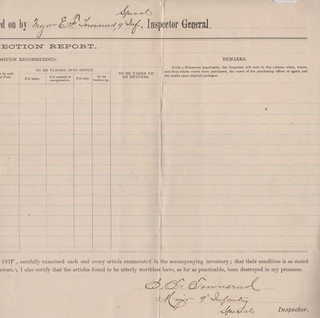 ed on by Major E. F. Townsend 9" Inf, Special Inspector General.
ECTION REPORT.
OSITION RECOMMENDED.
TO BE TURNED INTO DEPOT.
TO BE TAKEN UP ON RETURN.
REMARKS.
For issue.
For repairs or
For sale.
To be
NOTE.—Whenever practicable, the Inspector will note in this column when, where, and from whom stores were purchased, the name of the purchasing officer or agent, and the marks upon original packages.
187, carefully examined each and every article enumerated in the accompanying inventory; that their condition is as stated
I also certify that the articles found to be utterly worthless have, as far as practicable, been destroyed in my presence.
E. F. Townsend
Major 9" Infantry
Special Inspector.